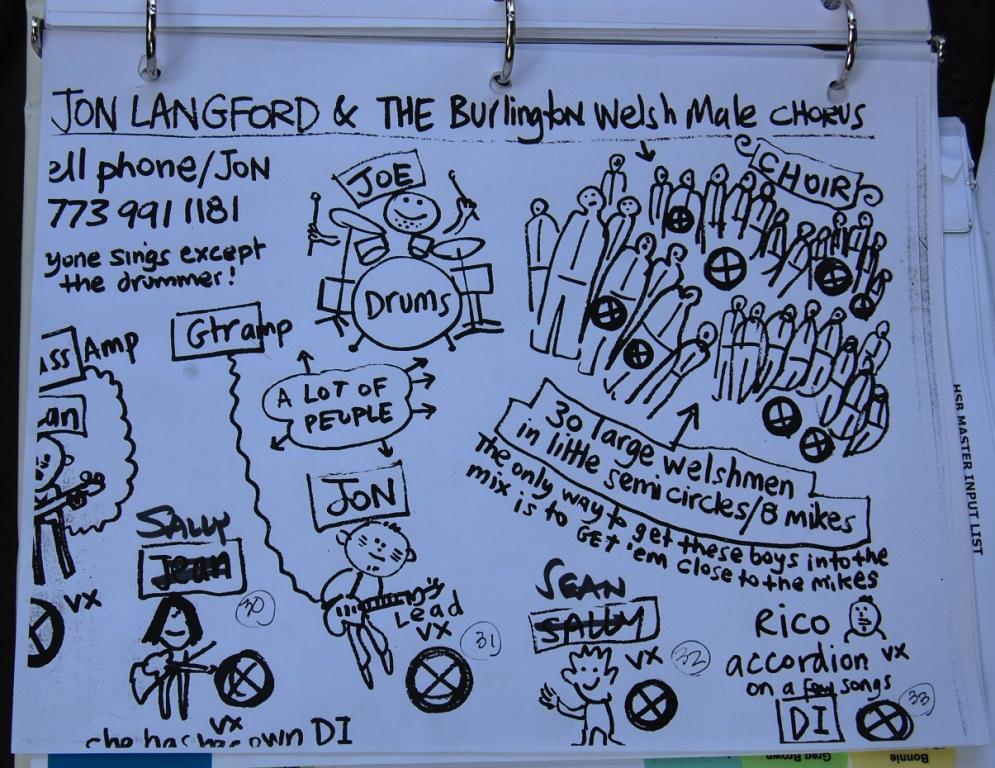 JON LANGFORD & THE Burlington Welsh Male CHORUS
ell phone/JON
773 991 1181
yone sings except
the drummer!
JOE
Drums
CHOIR
ss Amp
an
vx
Gtr amp
A LOT OF
PEUPLE
30 large welshmen
in little semicircles/8 mikes
The only way to get these boys into the
mix is to GET 'em close to the mikes
JON
Lead
vx
31
SALLY
Jean
30
vx
she has her own DI
SEAN
SALLY
vx
32
Rico
accordion vx
on a few songs
DI
33
HSB MASTER INPUT LIST
Greg Brown
Bonnie